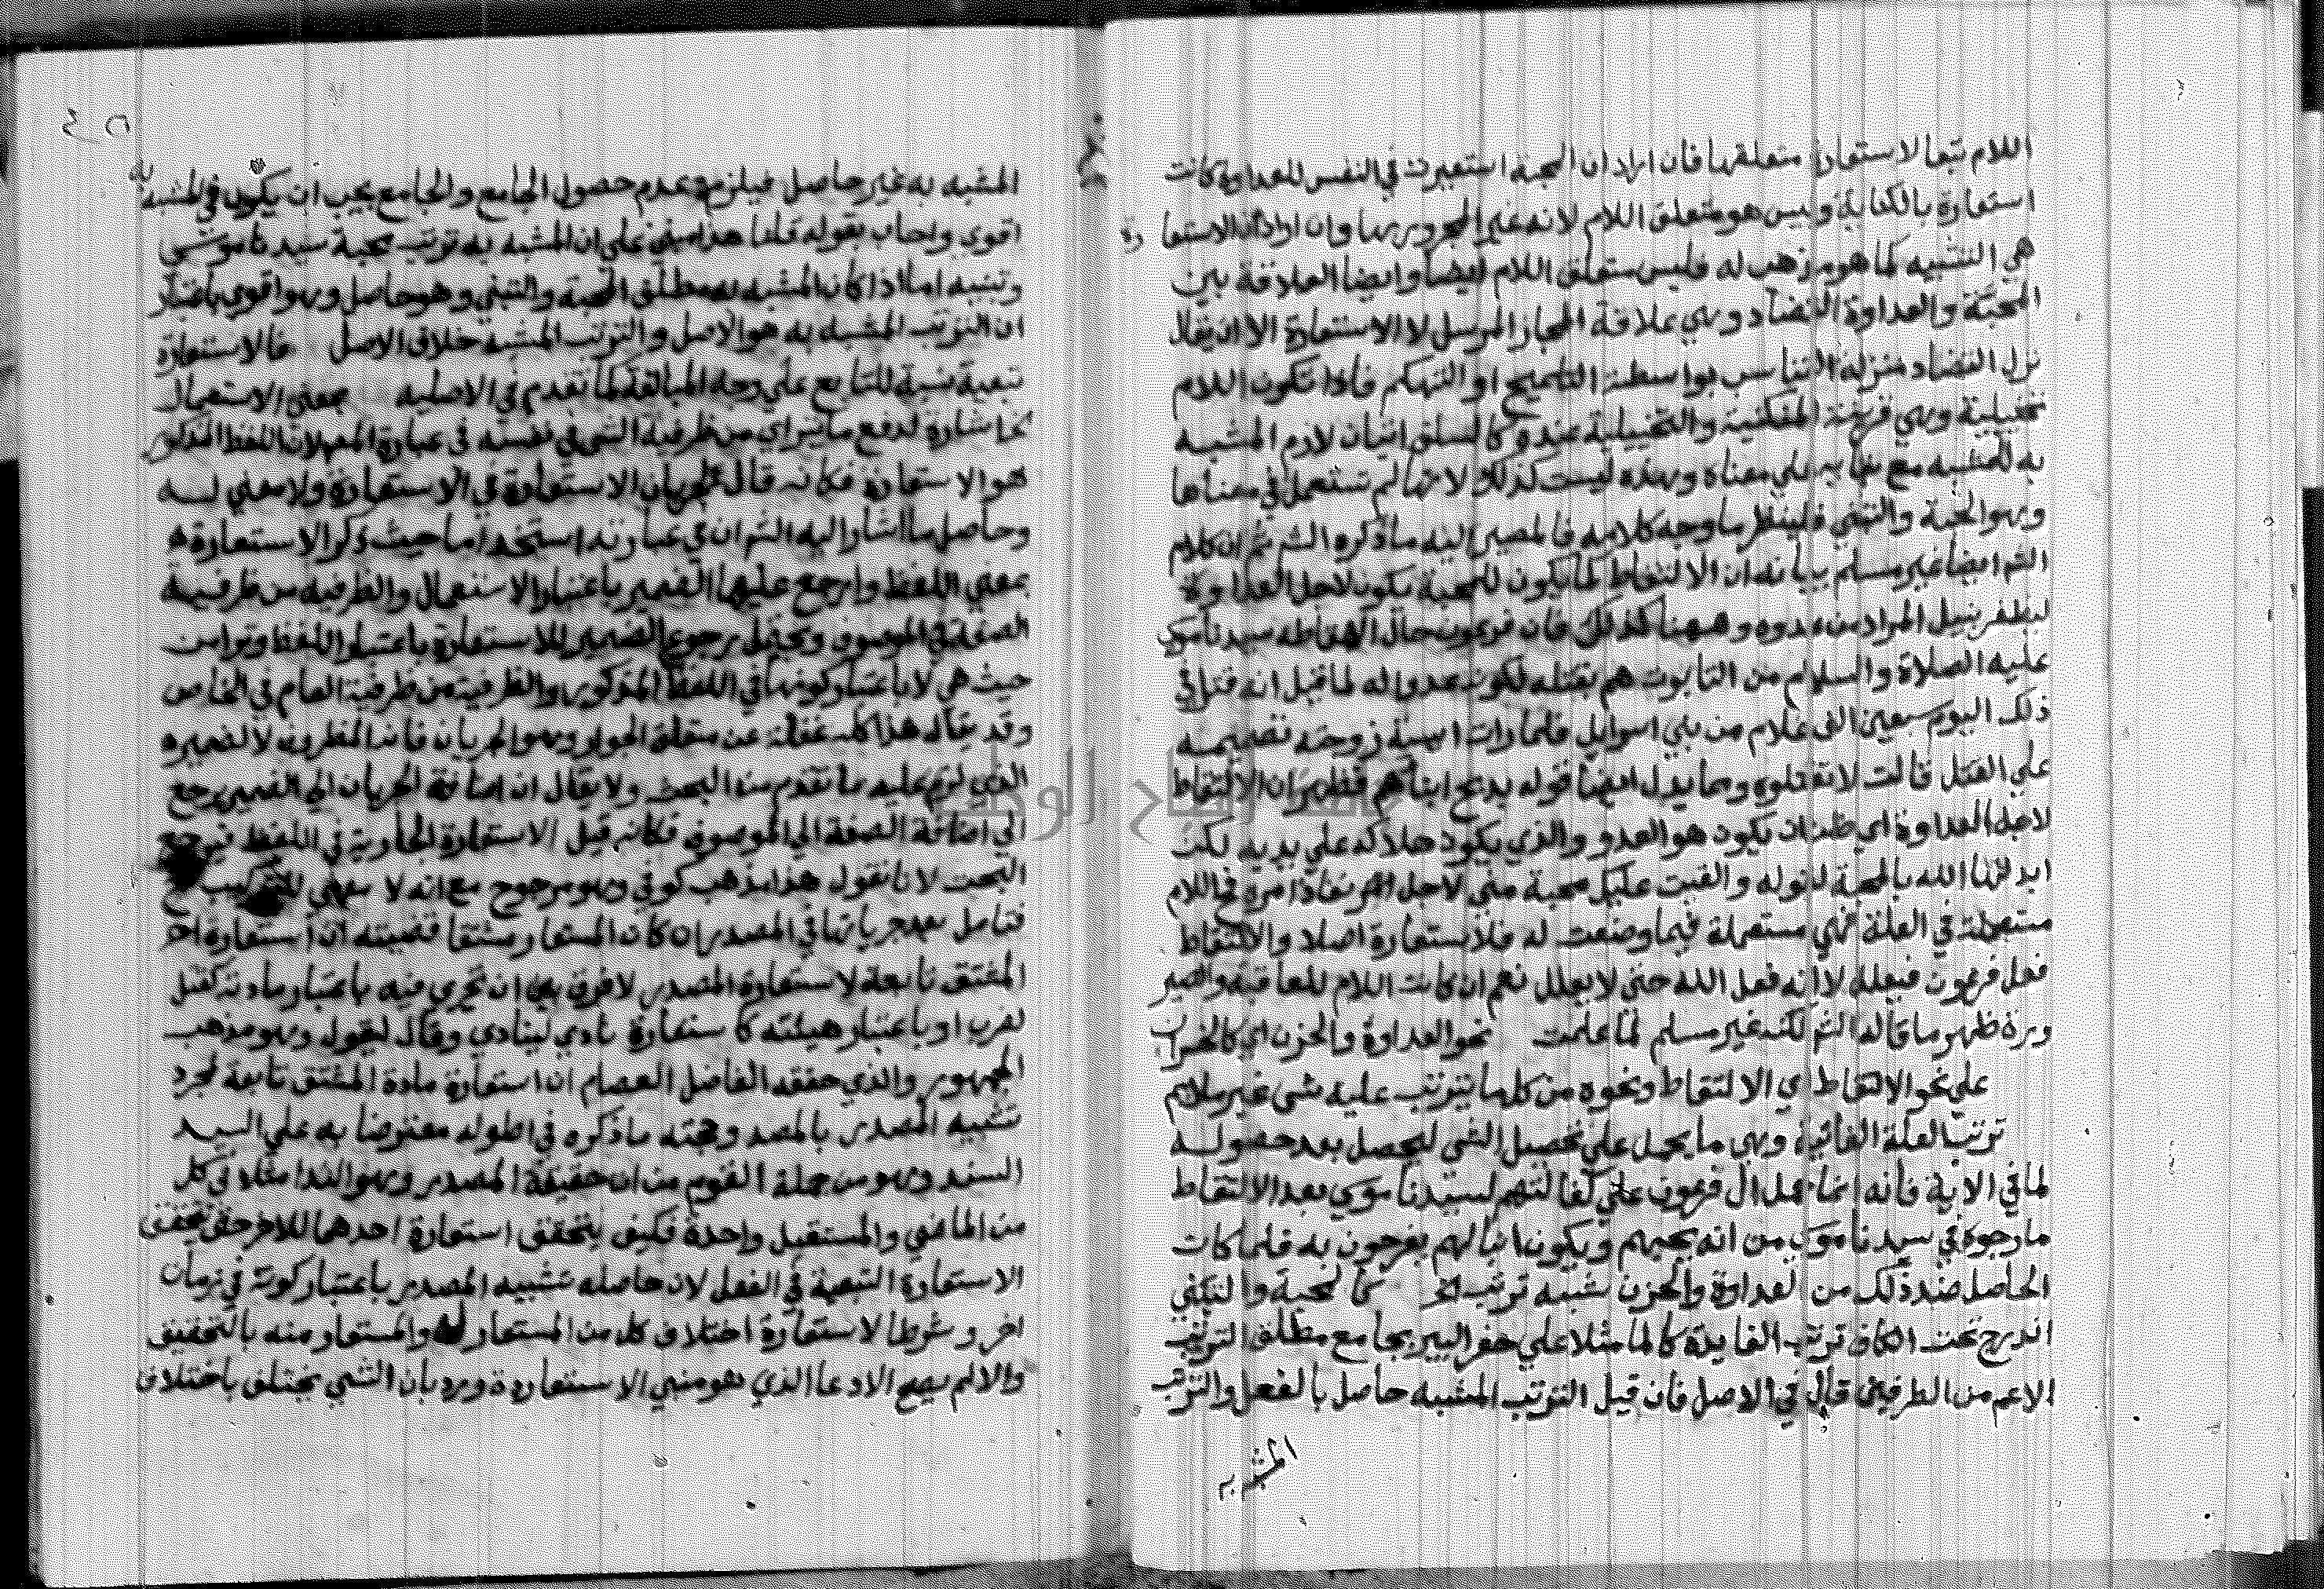 اللام تبعا لاستعارة متعلقها فان اراد ان المحبة استعيرت في النفس للعداوة كانت
استعارة بالكناية وليس هو متعلق اللام لانه غير المجرور بها وان اراد ان الاستعا رة
هي التشبيه كما هو مذهب له فليس متعلق اللام ايضا وايضا العلاقة بين
المحبة والعداوة التضاد وهي علاقة المجاز المرسل لا الاستعارة الا ان يقال
نزل التضاد منزلة التناسب بواسطة التلميح او التهكم فاذا تكون اللام
تخييلية وهي قرينة المكنية والتخييلية عنده كالسلف اتيان لازم المشبه
به للمشبه مع بقايه على معناه وهذه ليست كذلك لانها لم تستعمل في معناها
وهو المحبة والتبني فلينظر ما وجه كلامه فالمصير اليه ما ذكره الشم ثم ان كلام
الشم ايضا غير مسلم بيانه ان الالتقاط كما يكون للمحبة يكون لاجل العداوة
ليظفر بنيل المراد من عدوه وههنا كذلك فان فرعون حال التقاطه سيدنا موسى
عليه الصلاة والسلام من التابوت هم بقتله لكونه عدوا له لما قيل انه قتل في
ذلك اليوم سبعين الف غلام من بني اسرايل فلما رات اسية زوجته تصميمه
علي القتل قالت لا تقتلوه ومما يدل ايضا قوله يذبح ابناهم فظهر ان الالتقاط
لاجل العداوة اي ظنه ان يكون هو العدو والذي يكون هلاكه علي يديه لكن
ابدلها الله بالمحبة لقوله والقيت عليك محبة مني لاجل نفاذ امره فاللام
مستعملة في العلة فهي مستعملة فيما وضعت له فلا استعارة اصلا والالتقاط
فعل فرعون فيعلل لا انه فعل الله حتى لا يعلل نعم ان كانت اللام للعاقبة والصير
ورة ظهر ما قاله الشم لكنه غير مسلم لما علمت نحو العداوة والحزن اي كالخراب
علي نحو الالتقاط اي الالتقاط ونحوه من كلما يترتب عليه شي غير ملايم
ترتب العلة الغائية وهي ما يحمل علي تحصيل الشي ليحصل بعد حصوله
لما في الاية فانه انما حمل ال فرعون علي كفالتهم لسيدنا موسى بعد الالتقاط
ما رجوه في سيدنا موسى من انه يحبهم ويكون ابنا لهم يفرحون به فلما كانت
الحاصل ضد ذلك من العداوة والحزن شبه ترتب الخ كالمحبة والتبني
اندرج تحت الكاف ترتب الفايدة كالما مثلا علي حفر البير بجامع مطلق الترتب
الاعم من الطرفين قال في الاصل فان قيل الترتب المشبه حاصل بالفعل والترتب
المشبه به
المشبه به غير حاصل فيلزم عدم حصول الجامع والجامع يجب ان يكون في المشبه به
اقوي واجاب بقوله قلنا هذا مبني على ان المشبه به ترتب محبة سيدنا موسى
وتبنيه اما اذا كان المشبه به مطلق المحبة والتبني وهو حاصل وهو اقوي باعتبار
ان الترتب المشبه به هو الاصل والترتب المشبه خلاف الاصل فالاستعارة
تبعية نسبة للتابع على وجه المبالغة كما تقدم في الاصلية بمعنى الاستعمال
كما اشارة لدفع ما يتراي من ظرفية الشي في نفسه في عبارة المص لان اللفظ المذكور
هو الاستعارة فكانه قال لجريان الاستعارة في الاستعارة ولا معني له
وحاصل ما اشار اليه الشم ان في عبارته استخداما حيث ذكر الاستعارة
بمعني اللفظ وارجع عليها الضمير باعتبار الاستعمال والظرفية من ظرفية
الصفة في الموصوف ويحتمل رجوع الضمير للاستعارة باعتبار اللفظ ويراد من
حيث هي لا باعتبار كونها في اللفظ المذكور والظرفية من ظرفية العام في الخاص
وقد يقال هذا كله غفلة عن متعلق الجار وهو الجريان فانه المظروف لا الضمير
الذي يرد عليه ما تقدم من البحث ولا يقال ان اضافة الجريان الى الضمير يرجع
الى اضافة الصفة الي الموصوف فكانه قيل الاستعارة الجارية في اللفظ فيرجع
البحث لانا نقول هذا مذهب كوفي وهو مرجوح مع انه لا معني للتركيب
فتامل بعد جريانها في المصدر ان كان المستعار مشتقا قضيته ان استعارة
المشتق تابعة لاستعارة المصدر لا فرق بين ان تجري فيه باعتبار مادته كقتل
لضرب او باعتبار هيئته كاستعارة نادي لينادي وقال لقيول وهو مذهب
الجمهور والذي حققه الفاضل العصام ان استعارة مادة المشتق تابعة لمجرد
تشبيه المصدر بالمصدر وحجته ما ذكره في اطوله معترضا به علي السيد
السند وهو من جملة القوم من ان حقيقة المصدر وهو النداء مثلا في كل
من الماضي والمستقبل واحدة فكيف يتحقق استعارة احدهما للاخر حتى يتحقق
الاستعارة التبعية في الفعل لان حاصله تشبيه المصدر باعتبار كونه في زمان
اخر وشرط الاستعارة اختلاف كل من المستعار له والمستعار منه بالتحقيق
والا لم يصح الادعا الذي هو مبني الاستعارة ورد بان الشي يختلف باختلاف